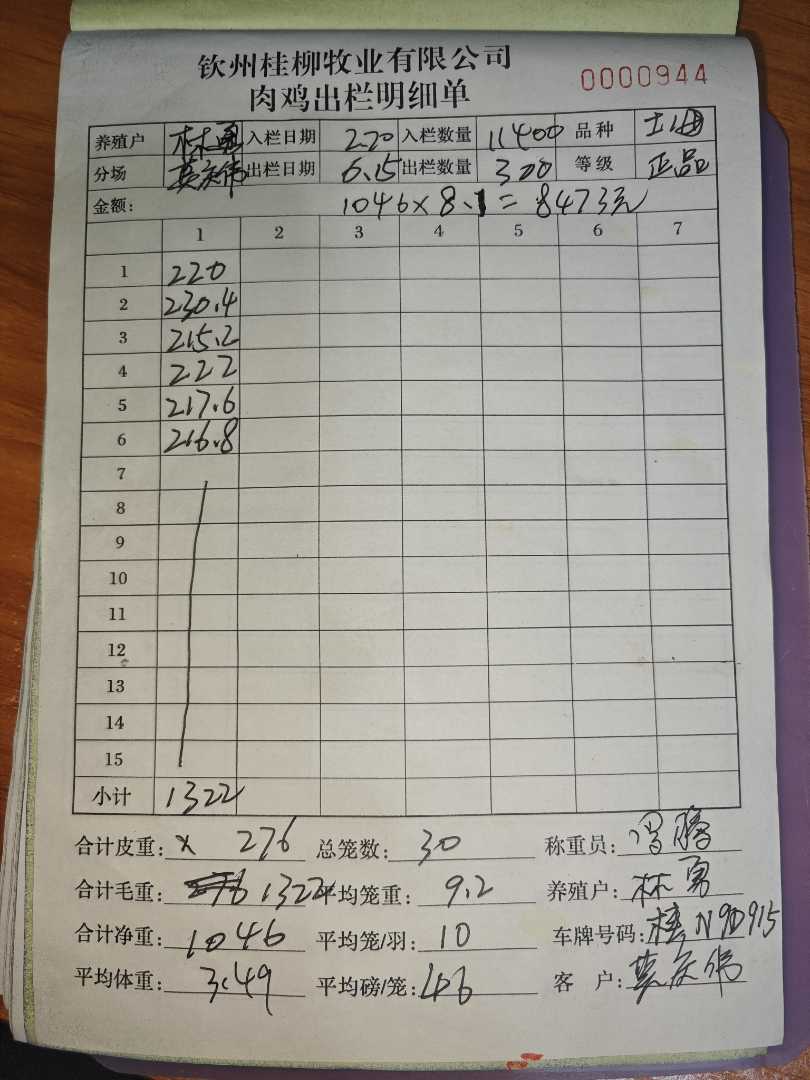 钦州桂柳牧业有限公司
肉鸡出栏明细单
0000944
养殖户 林勇 入栏日期 2.20 入栏数量 11400 品种 土2
分场 莫庆伟 出栏日期 6.15 出栏数量 300 等级 正品
金额: 1046×8.1=8473元
1 2 3 4 5 6 7
1 220
2 230.4
3 215.2
4 222
5 217.6
6 216.8
7
8
9
10
11
12
13
14
15
小计 1322
合计皮重: × 276 总笼数: 30 称重员: 冯腾
合计毛重: 1322 平均笼重: 9.2 养殖户: 林勇
合计净重: 1046 平均笼/羽: 10 车牌号码: 桂N9D915
平均体重: 3.49 平均磅/笼: 4.6 客 户: 莫庆伟